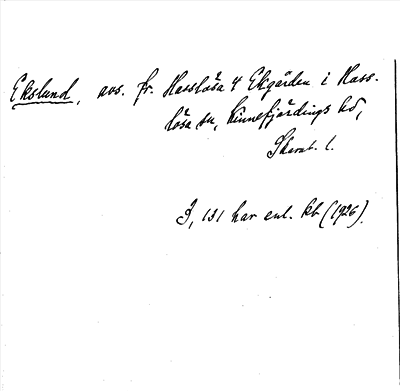 Ekslund, avs. fr. Hasslösa 4 Ekgården i Hass-
lösa sn, Kinnefjärdings hd,
Skarab. l.
3, 131 har enl. kb (1926).